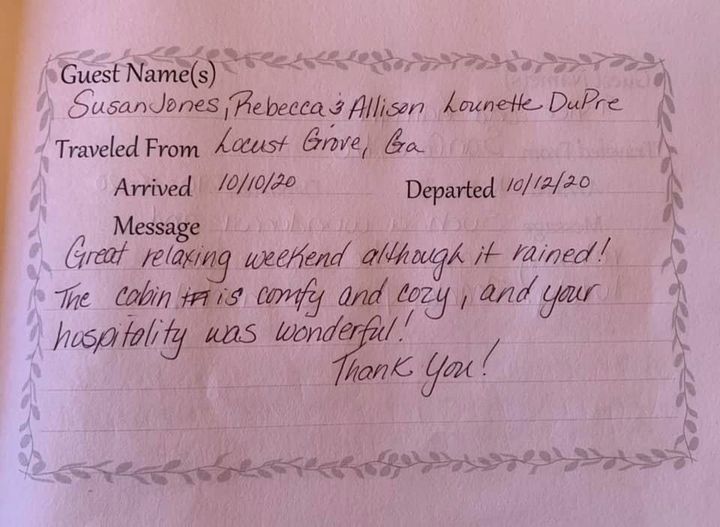 Guest Name(s)
Susan Jones, Rebecca & Allison Lounette DuPre
Traveled From Locust Grove, Ga
Arrived 10/10/20 Departed 10/12/20
Message
Great relaxing weekend although it rained!
The cabin is comfy and cozy, and your
hospitality was wonderful!
Thank You!